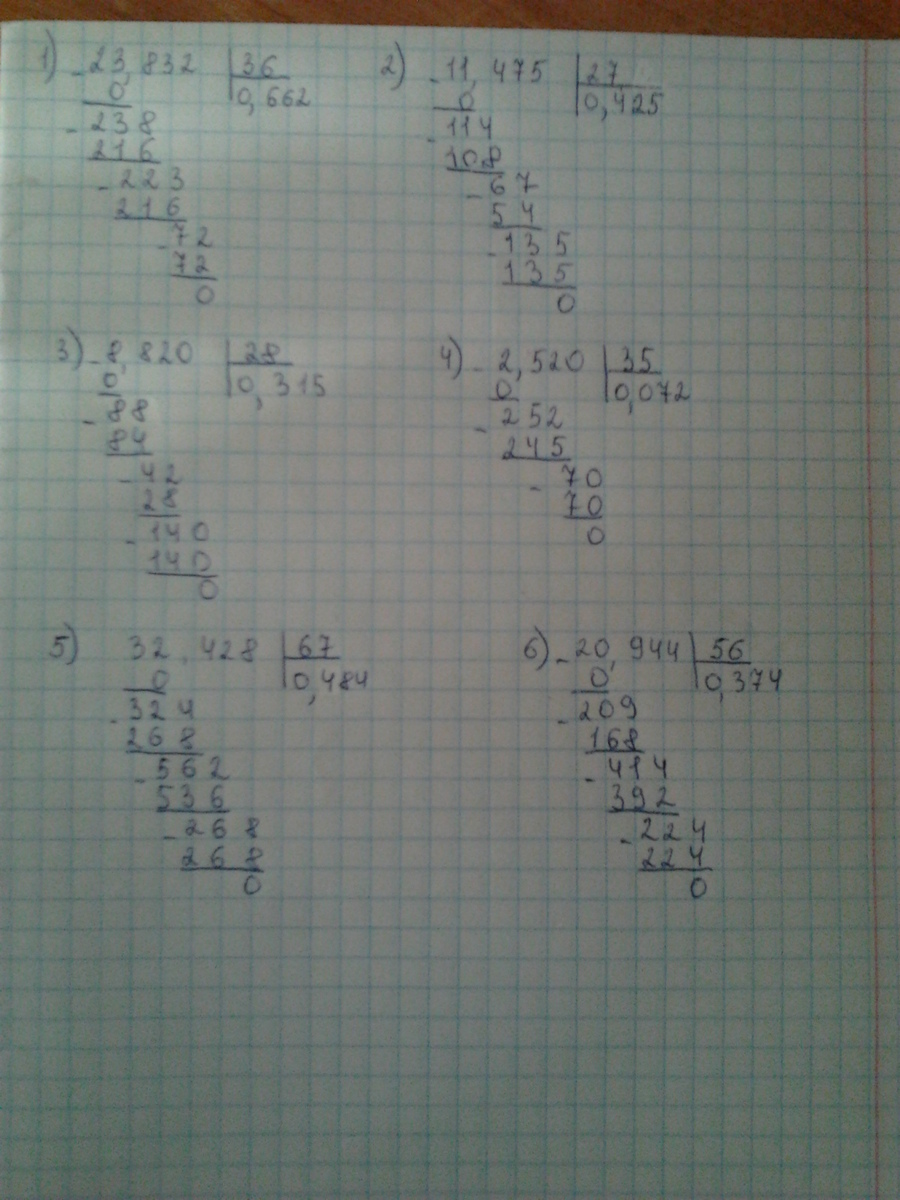 1) - 23,832 | 36
0 | 0,662
- 238
216
- 223
216
- 72
72
0
2) - 11,475 | 27
0 | 0,425
- 114
108
- 67
54
- 135
135
0
3) - 8,820 | 28
0 | 0,315
- 88
84
- 42
28
- 140
140
0
4) - 2,520 | 35
0 | 0,072
- 252
245
- 70
70
0
5) 32,428 | 67
0 | 0,484
- 324
268
- 562
536
- 268
268
0
6) - 20,944 | 56
0 | 0,374
- 209
168
- 414
392
- 224
224
0